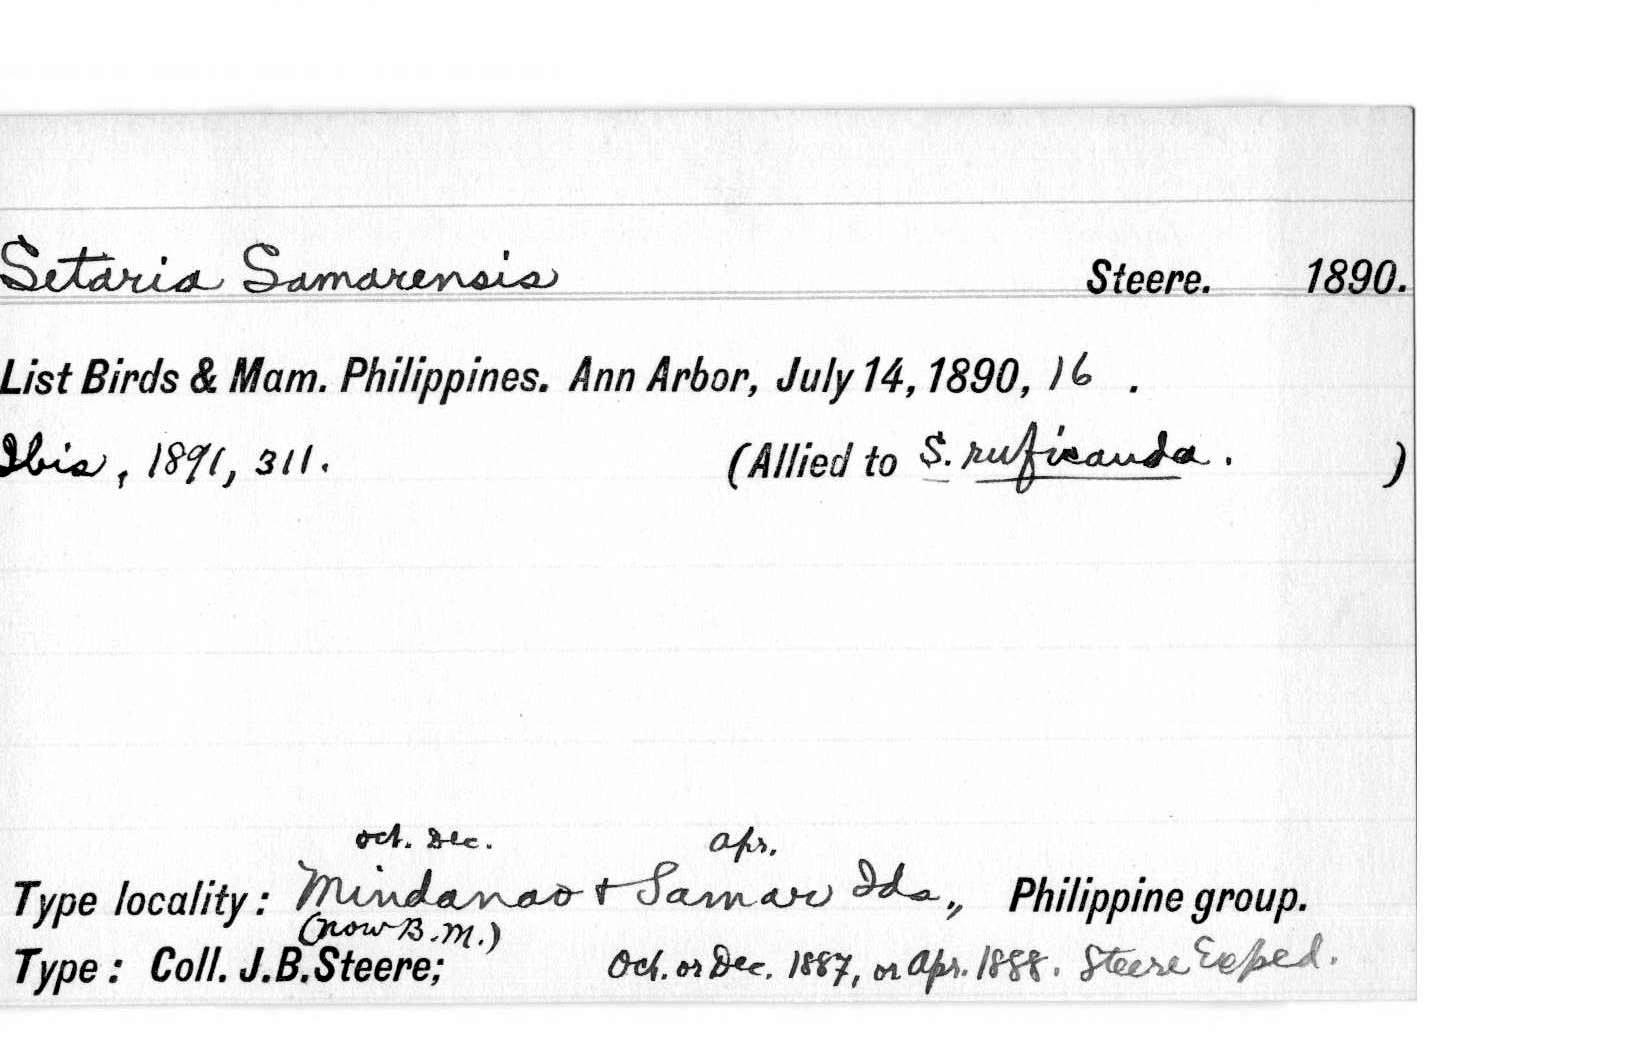 Setaria Samarensis Steere. 1890.
List Birds & Mam. Philippines. Ann Arbor, July 14, 1890, 16 .
Ibis, 1891, 311. (Allied to S. ruficauda. )
Oct. Dec. Apr.
Type locality: Mindanao + Samar Ids., Philippine group.
(now B.M.)
Type: Coll. J.B. Steere; Oct. or Dec. 1887, or Apr. 1888. Steere Exped.